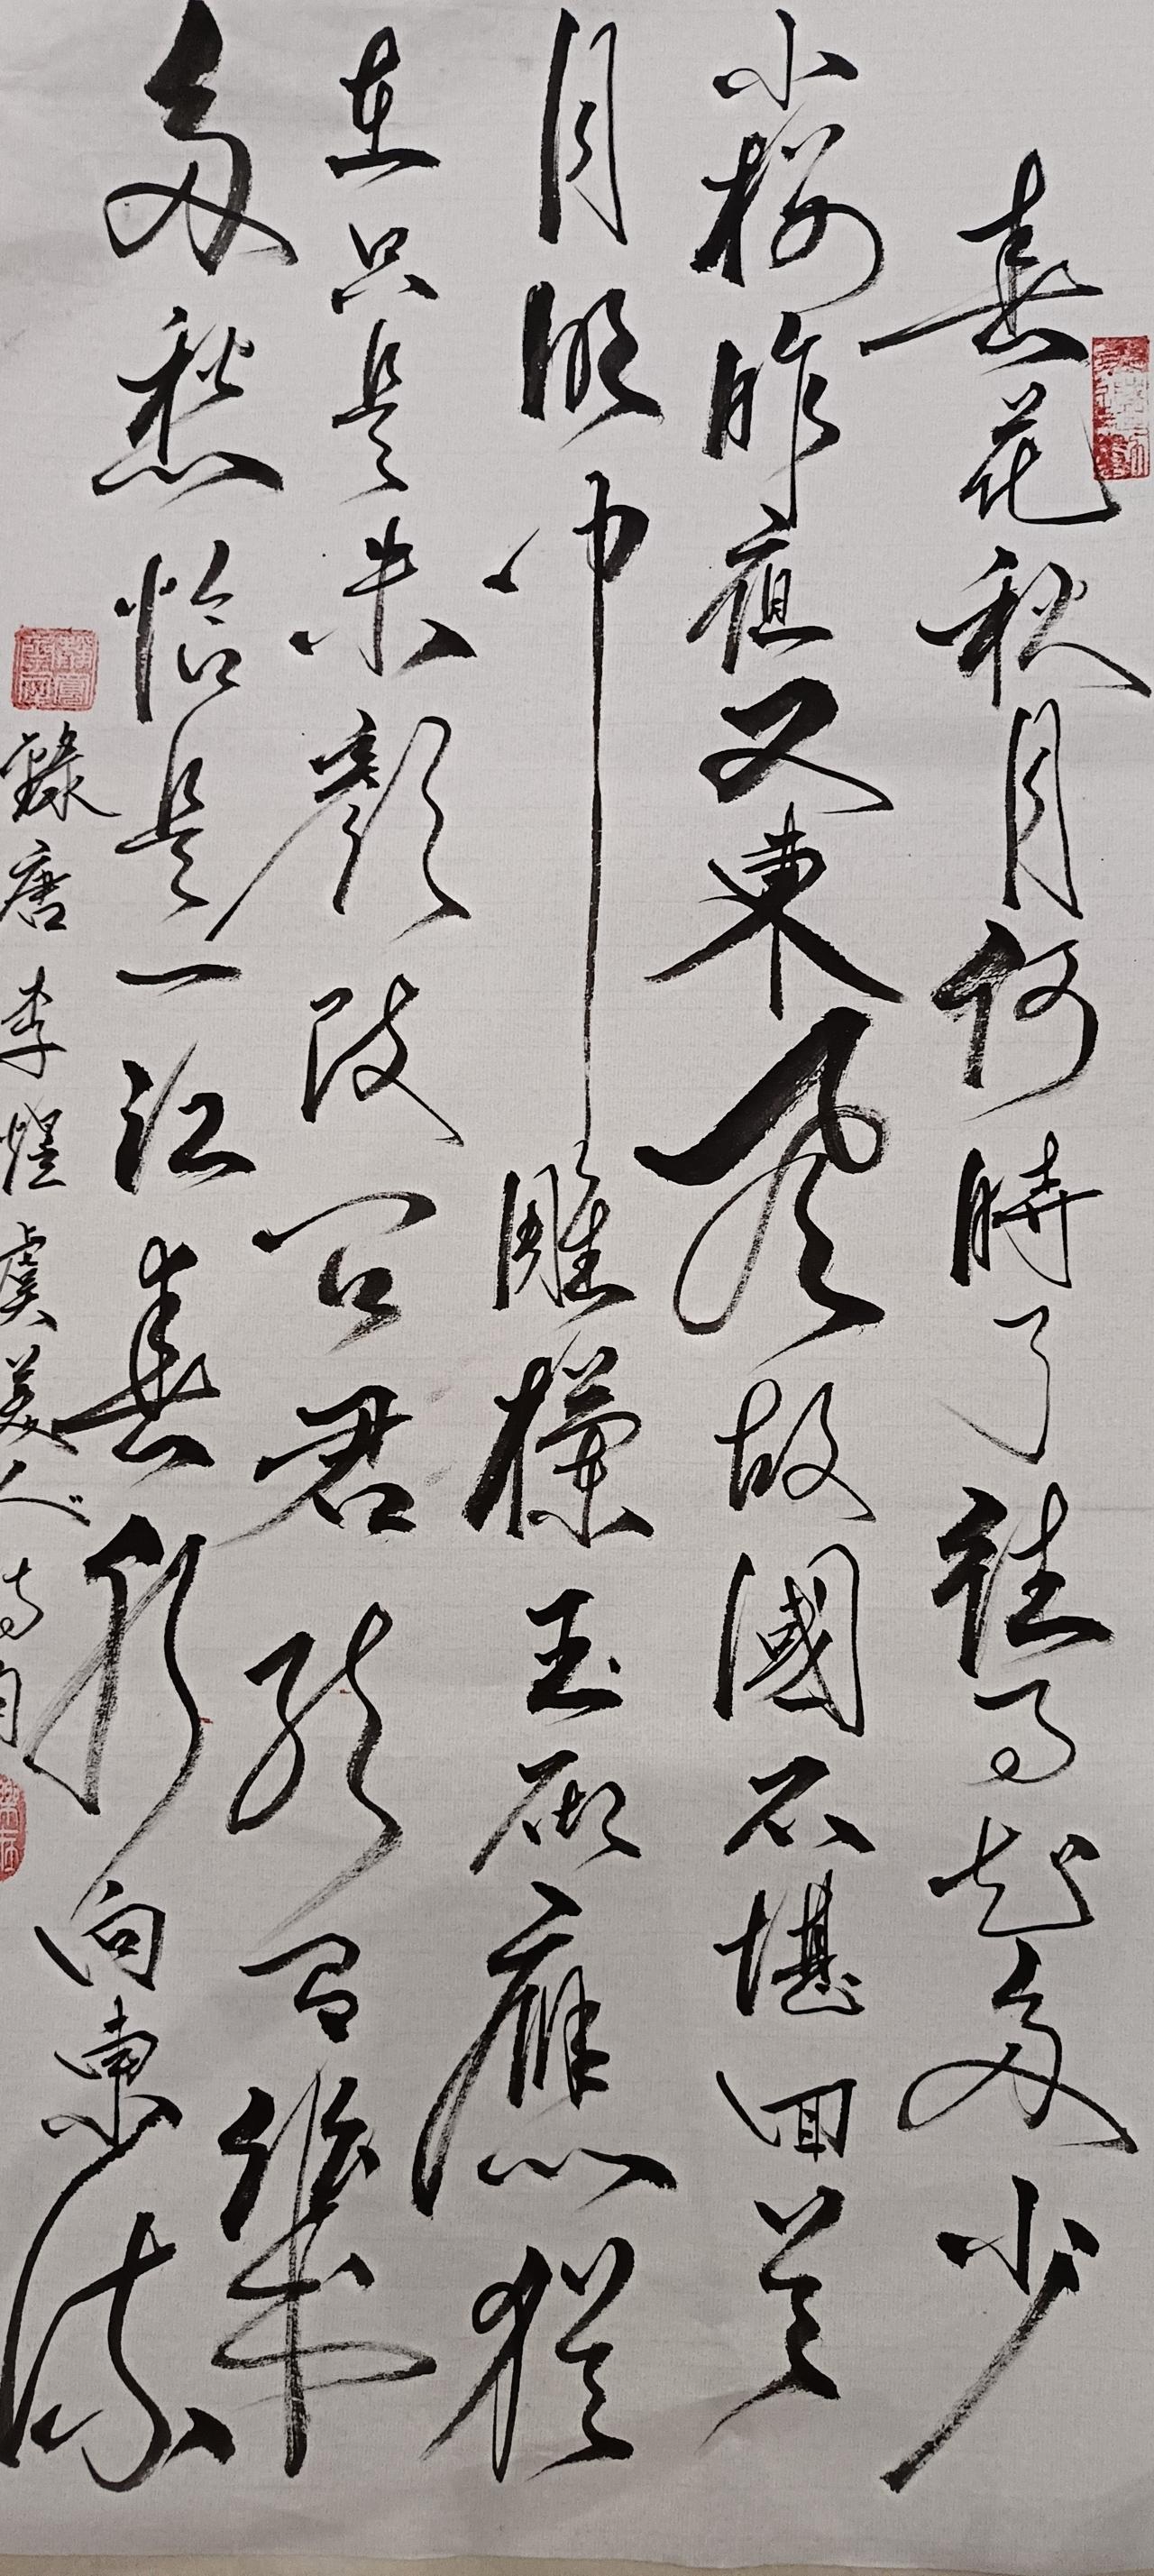 春花秋月何時了往事知多少
小樓昨夜又東風故國不堪回首
月明中雕欄玉砌應猶
在只是朱顏改問君能有幾
多愁恰是一江春水向東流
錄唐李煜虞美人